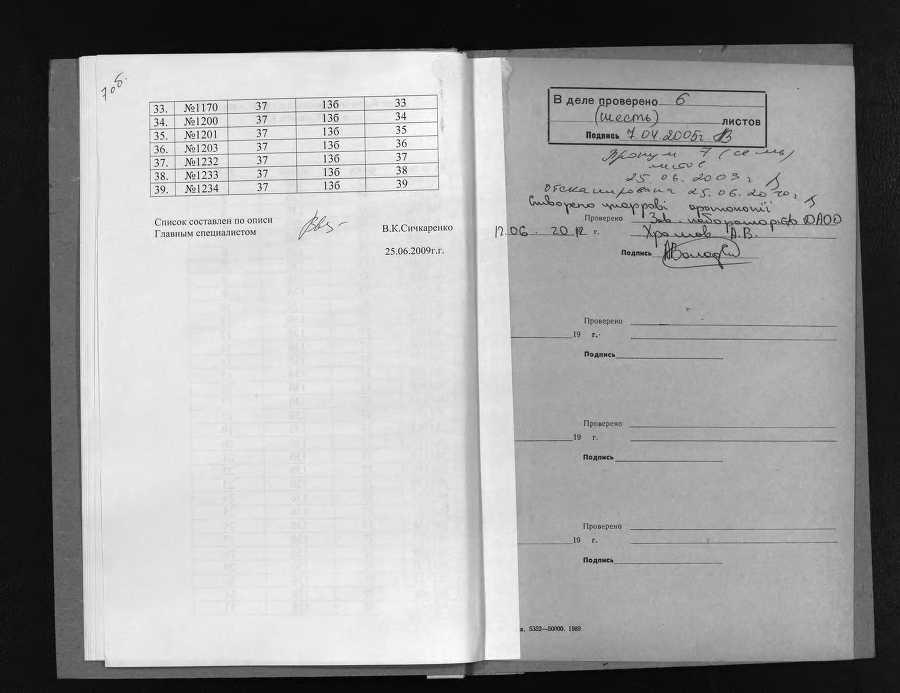 7об.
33. №1170 37 13б 33
34. №1200 37 13б 34
35. №1201 37 13б 35
36. №1203 37 13б 36
37. №1232 37 13б 37
38. №1233 37 13б 38
39. №1234 37 13б 39
Список составлен по описи
Главным специалистом В.К.Сичкаренко
25.06.2009г.г.
В деле проверено 6
(шесть) листов
Подпись 7.04.2005г.
7 (семь)
листов
25.06.2003 г.
Отсканирован 25.06.20
Створено цифрові
Проверено Зав. лабораторією ДАОО
12.06. 2012 г. Храмов А.В.
Подпись
Проверено
19 г.
Подпись
Проверено
19 г.
Подпись
Проверено
19 г.
Подпись
5352—50000. 1989